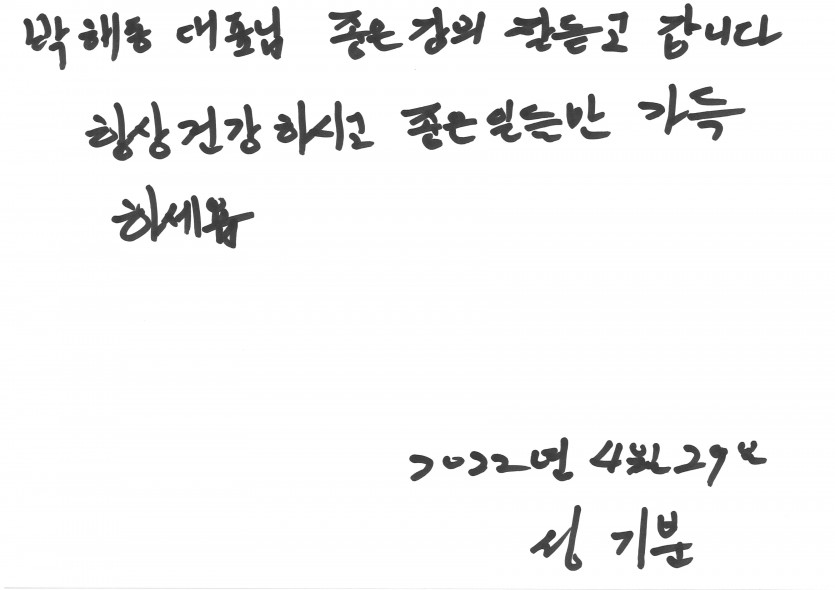 박해동 대표님 좋은 강의 잘듣고 갑니다
항상 건강 하시고 좋은일들만 가득
하세요
2022년 4월 29일
성 기분